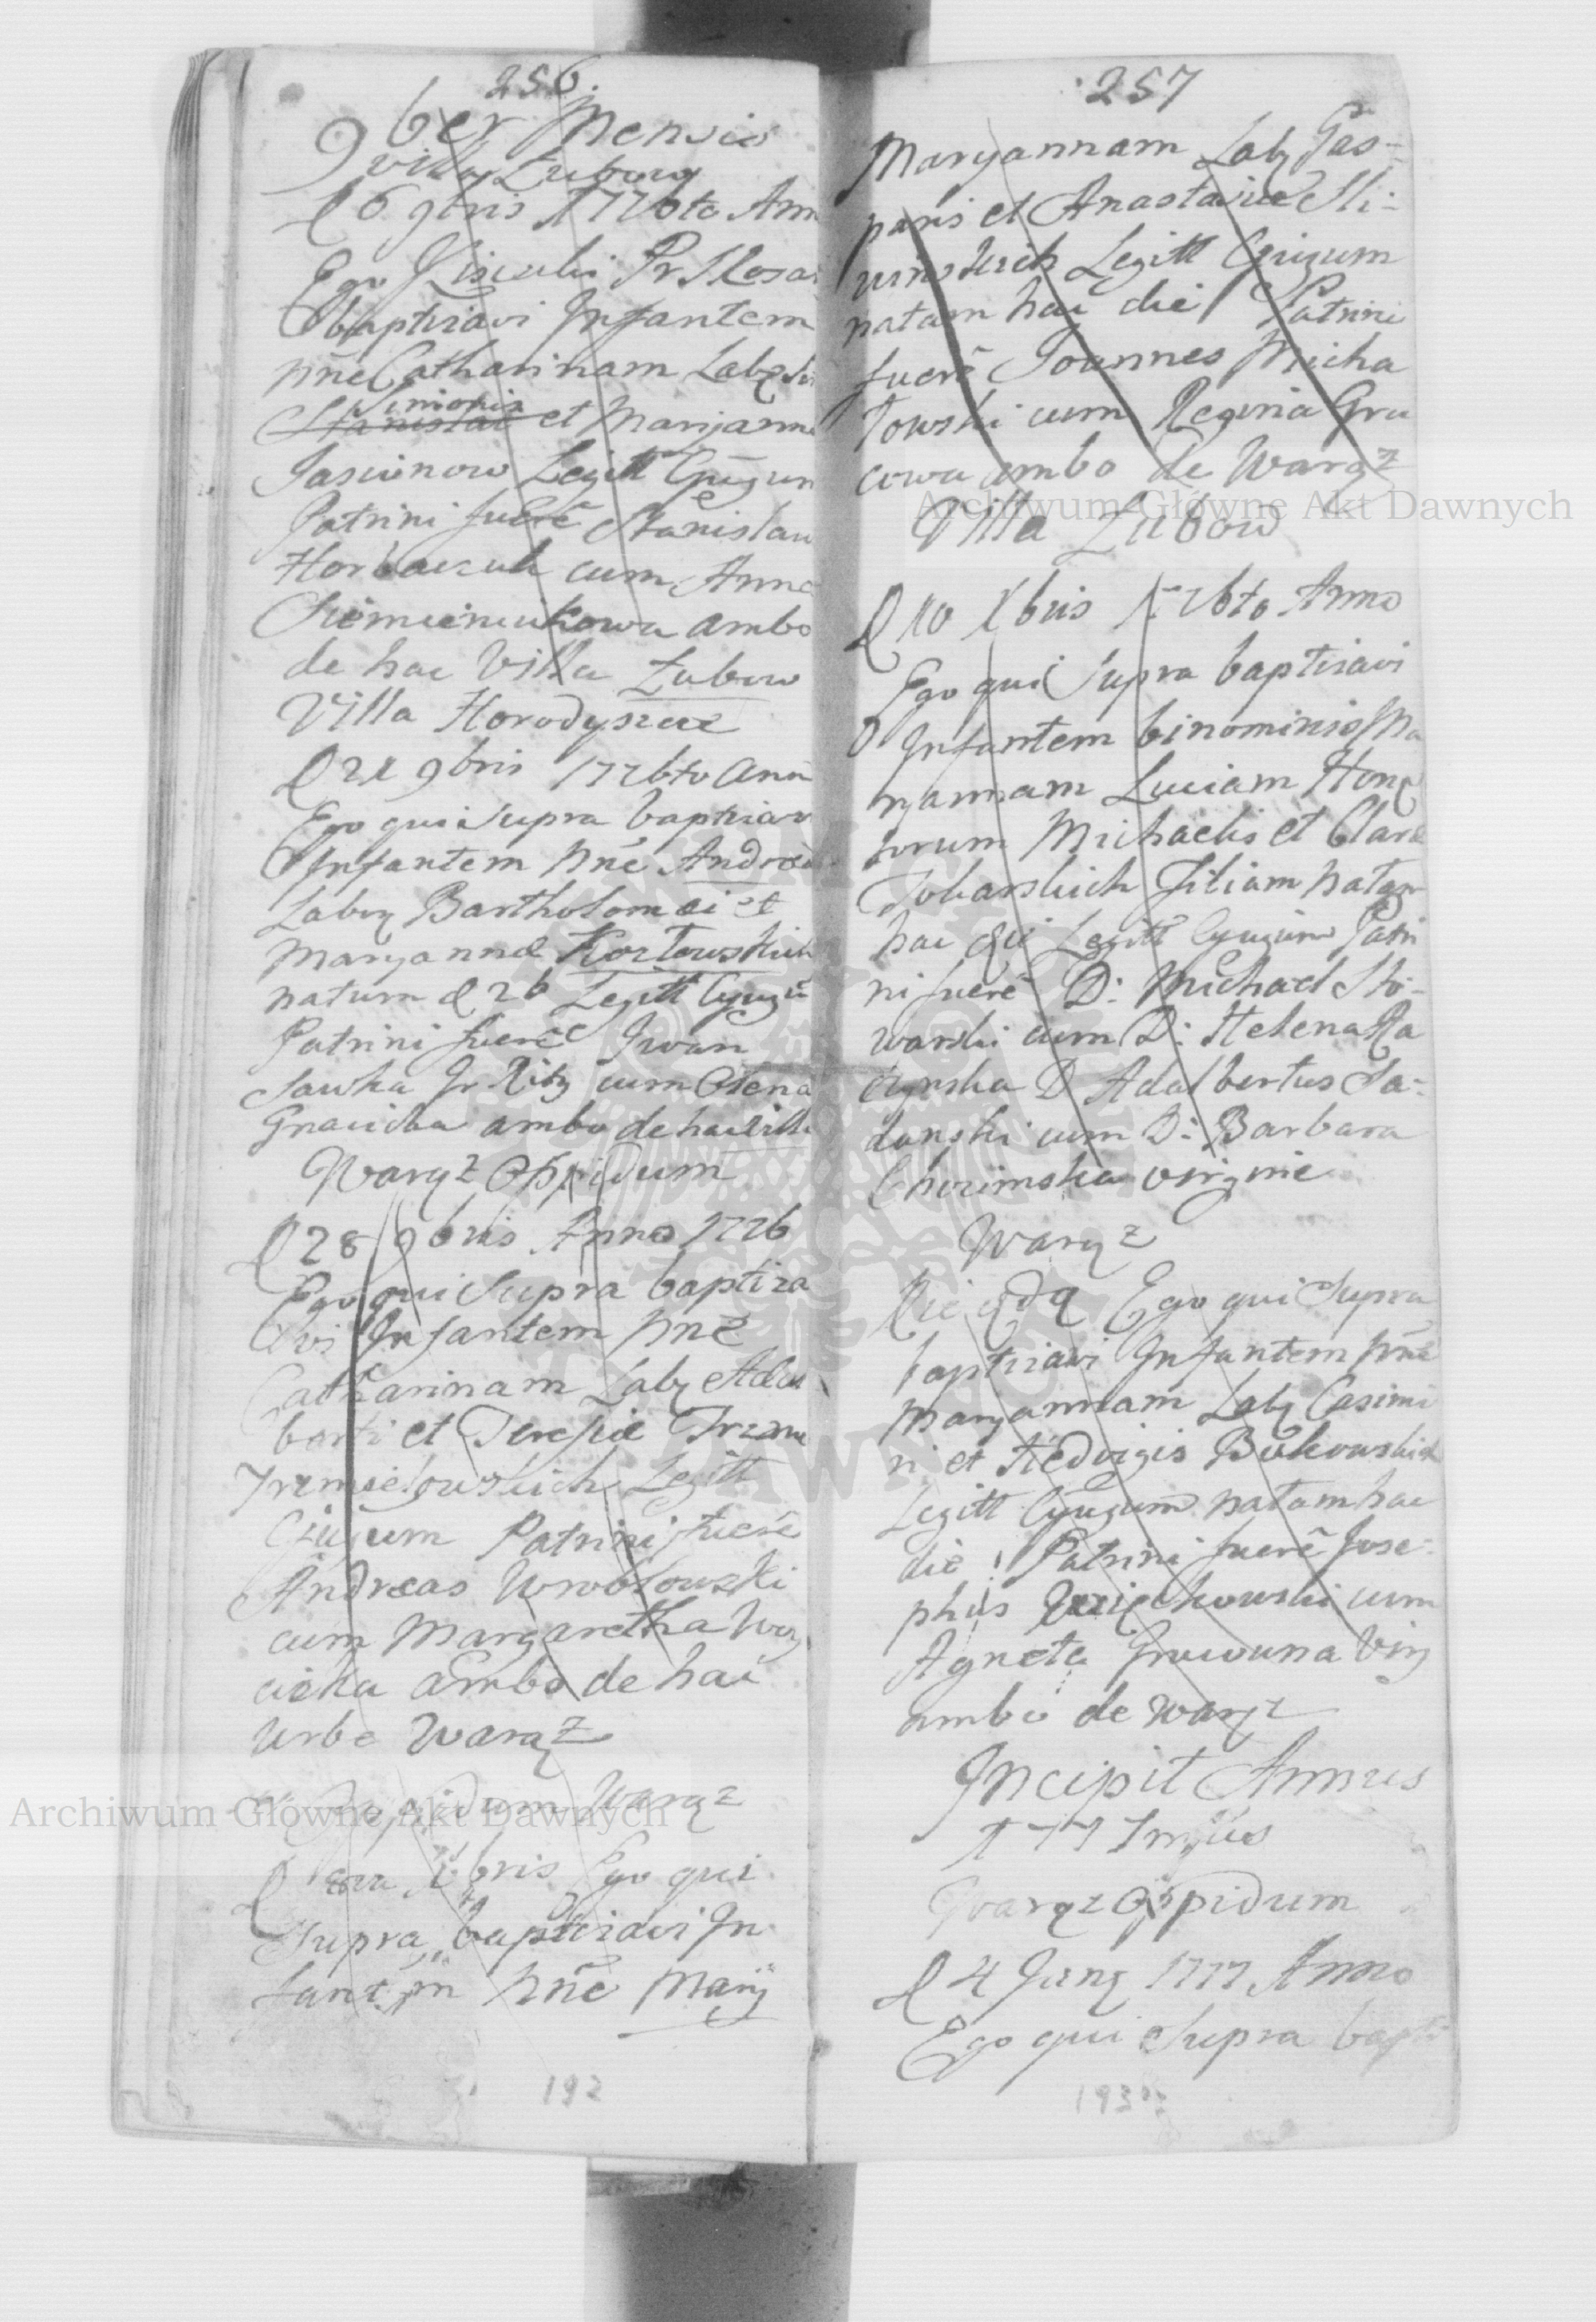 256.
9ber Mensis
villa Żubow
D 6 9bris 1776to Ann
Ego Pr Rosar
baptizavi Infantem
pñe Catharinam Labq
Stanislai Simonis et Maryanna
Jasionow Legitt Cjugum
Patrini fuerẽ Stanislaus
Horbaczuk cum Anna
Siemieniukowa ambo
de hac Villa Żubow
Villa Horodyszcze
D 21 9bris 1776to Ann
Ego qui Supra baptizav
Infantem pñe Andream
Labq Bartholomei et
Maryannæ Kozłowskich
natum d 26 Legitt Cjugũ
Patrini fuerẽ Iwan
Sawka Gr Ritq cum Olena
ambo de hac villa
Waręz Oppidum
D 28 9bris Anno 1776
Ego qui Supra baptiza
vi Infantem pñe
Catharinam Labq Adal
berti et
Legitt
Cjugum Patrini fuerẽ
Andreas Wrobłowski
cum Margaretha
ambo de hac
Urbe Waręz
Oppidum Waręz
D Xbris Ego qui
Supra baptizavi In
fantem pñe Mary
192
257
Maryannam Labq Gas-
paris et Anastasiæ Sli-
winskich Legitt Cjugum
natam hac die Patrini
fuerẽ Joannes Micha
łowski cum Regina Gra
cowa ambo de Waręz
Villa Żubow
D 10 Xbris 1776to Anno
Ego qui Supra baptizavi
Infantem binominis Ma
ryannam Luciam Gene
sorum Michaelis et Claræ
Filiam natam
hac die Legitt Cjugum Patri
ni fuerẽ D: Michael Sto-
warski cum D: Helena Ra
czynska D Adalbertus Sa-
danski cum D: Barbara
virgine
Waręz
Die eadq Ego qui Supra
baptizavi Infantem pñe
Maryannam Labq Casimi
ri et Hedvigis Bukowskich
Legitt Cjugum natam hac
die Patrini fuerẽ Jose-
phus cum
Agneta Virg
ambo de Waręz
Incipit Annus
1777
Waręz Oppidum
D 4 Janq 1777 Anno
Ego qui Supra bapti
193
Archiwum Główne Akt Dawnych
Archiwum Główne Akt Dawnych